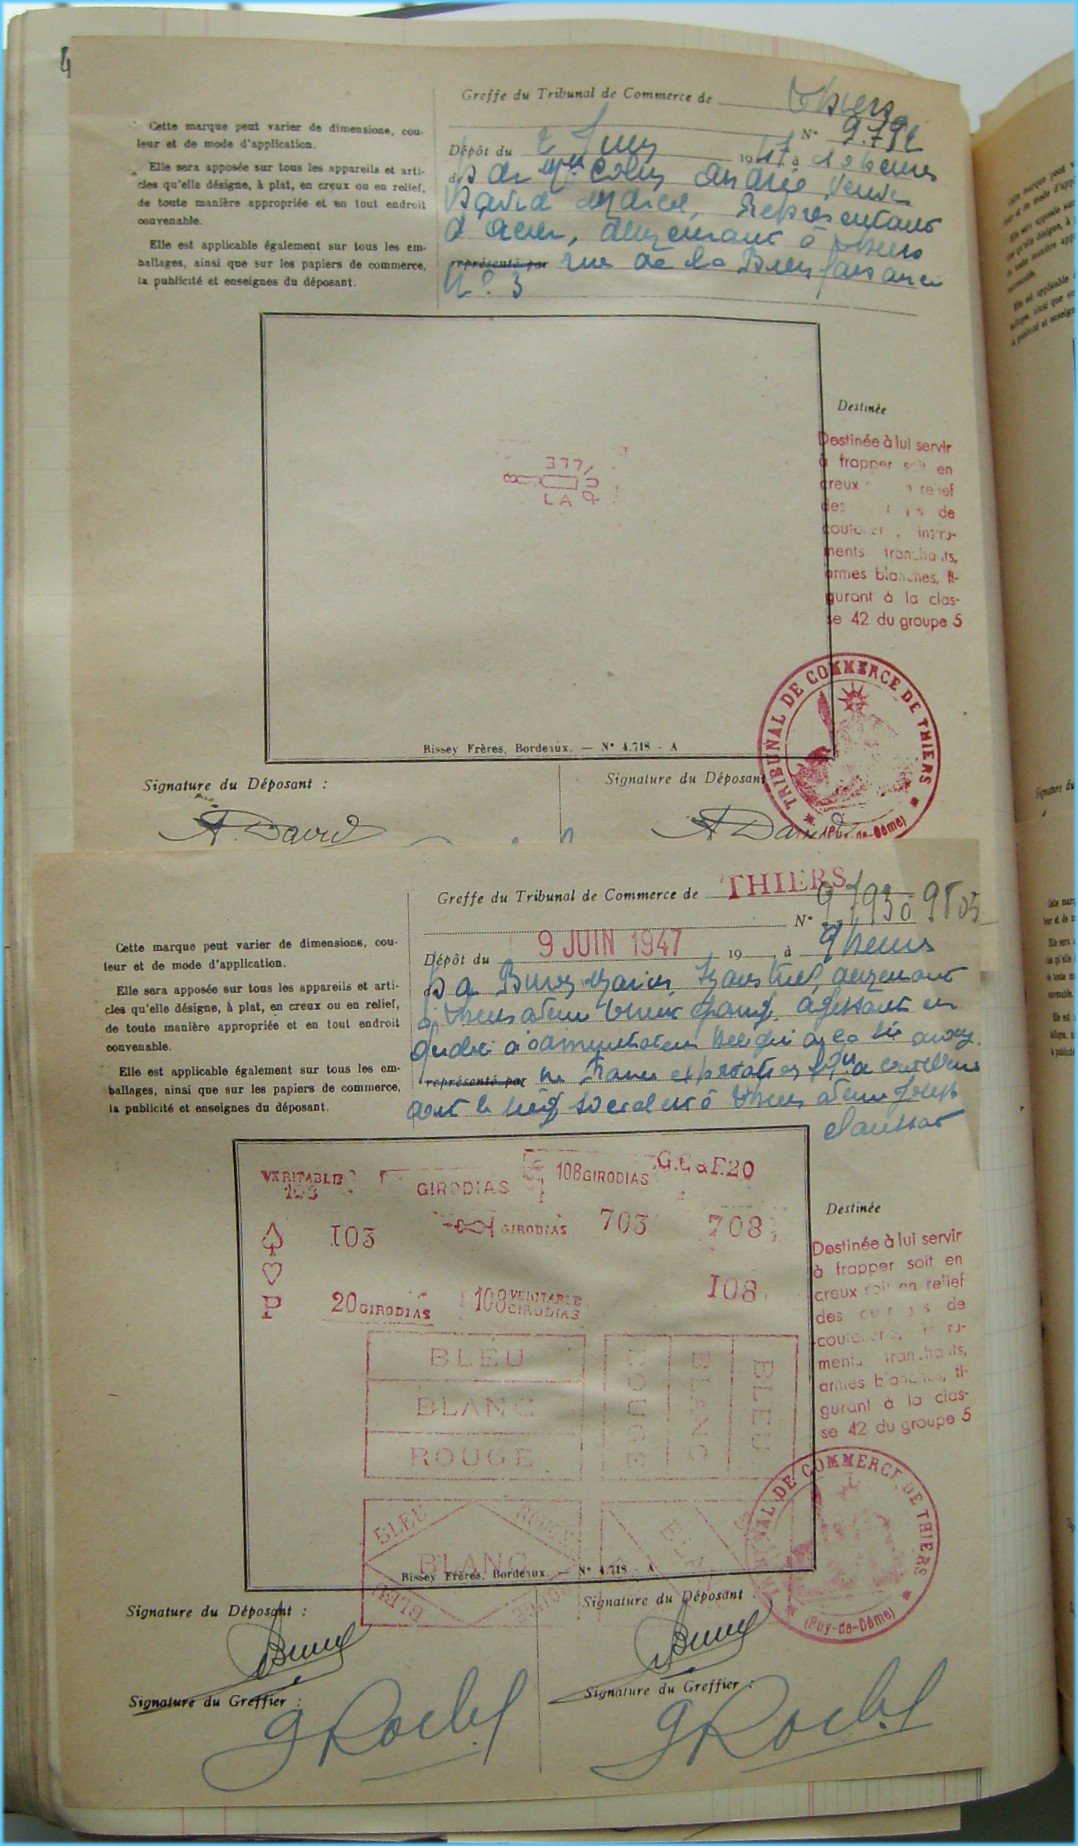 4
Greffe du Tribunal de Commerce de Thiers
N° 9.792
Cette marque peut varier de dimensions, cou-
leur et de mode d'application.
Elle sera apposée sur tous les appareils et arti-
cles qu'elle désigne, à plat, en creux ou en relief,
de toute manière appropriée et en tout endroit
convenable.
Elle est applicable également sur tous les em-
ballages, ainsi que sur les papiers de commerce,
la publicité et enseignes du déposant.
Dépôt du 2 Juin 1947 à 10 heures
David Marcel, Représentant
d'acier, demeurant à Thiers
représenté par rue de la Bienfaisance
N° 3
377
LA
Destinée
Destinée à lui servir
à frapper soit en
creux relief
des de
instru-
ments tranchants,
armes blanches, fi-
gurant à la clas-
se 42 du groupe 5
TRIBUNAL DE COMMERCE DE THIERS
(Puy-de-Dôme)
Bissey Frères, Bordeaux. — N° 4.718 - A
Signature du Déposant :
Signature du Déposant
A David
A David
Greffe du Tribunal de Commerce de THIERS
N° 9793 à 9805
Cette marque peut varier de dimensions, cou-
leur et de mode d'application.
Elle sera apposée sur tous les appareils et arti-
cles qu'elle désigne, à plat, en creux ou en relief,
de toute manière appropriée et en tout endroit
convenable.
Elle est applicable également sur tous les em-
ballages, ainsi que sur les papiers de commerce,
la publicité et enseignes du déposant.
Dépôt du 9 JUIN 1947 19 à 9 heures
demeurant
à Thiers agissant en
représenté par
dont le siège social est à Thiers
VERITABLE
103
GIRODIAS
108 GIRODIAS
G.G & F.20
103
GIRODIAS
703
708
P
20 GIRODIAS
108 VERITABLE GIRODIAS
108
BLEU
BLANC
ROUGE
ROUGE
BLANC
BLEU
BLEU
ROUGE
BLANC
BLEU
ROUGE
Destinée
Destinée à lui servir
à frapper soit en
creux soit en relief
des de
ments tranchants,
armes blanches, fi-
gurant à la clas-
se 42 du groupe 5
TRIBUNAL DE COMMERCE DE THIERS
(Puy-de-Dôme)
Bissey Frères, Bordeaux. — N° 4.718 - A
Signature du Déposant :
Signature du Déposant :
Signature du Greffier :
Signature du Greffier :